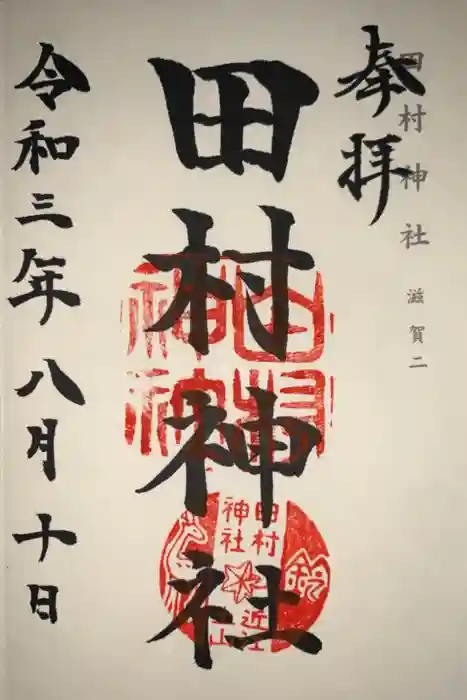 奉拝
田村神社 滋賀二
田村神社
田村
神社
近江
令和三年八月十日